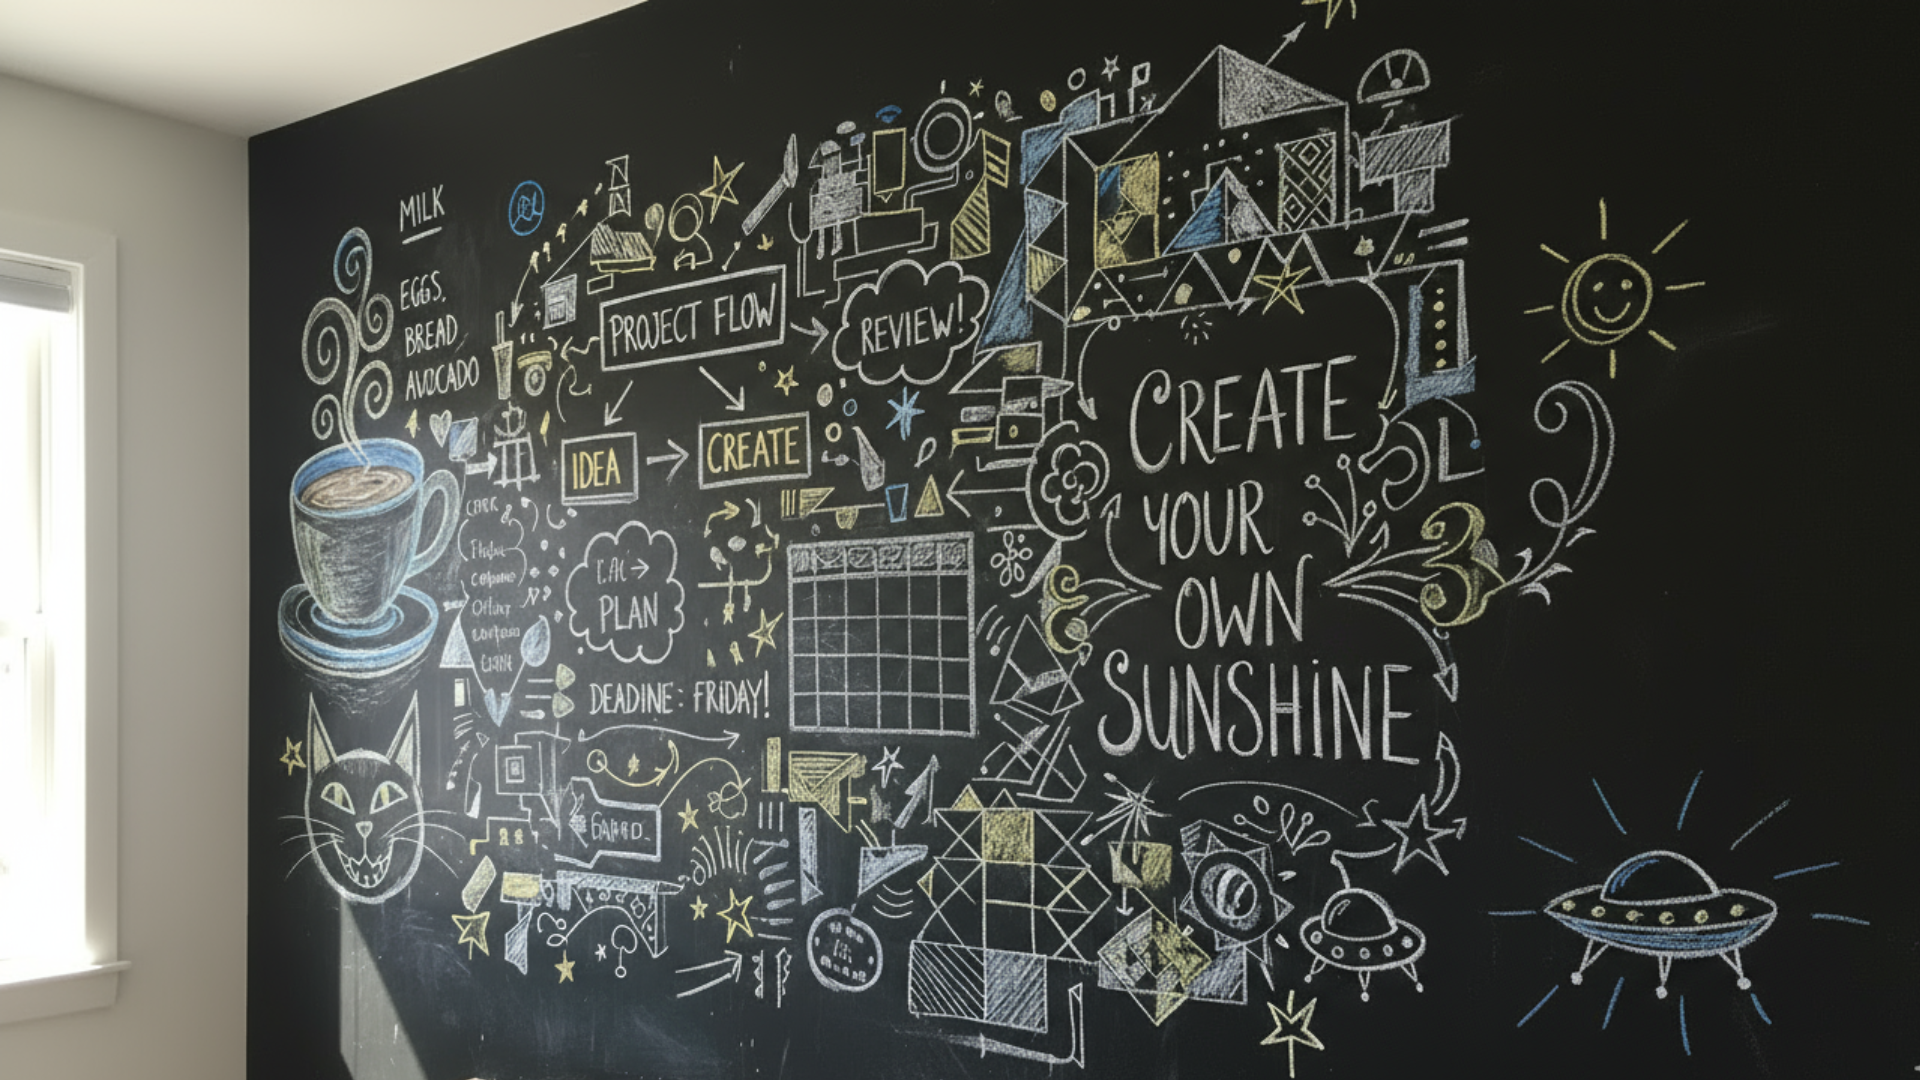 MILK
EGGS,
BREAD
AVOCADO
PROJECT FLOW
REVIEW!
IDEA
CREATE
PLAN
DEADINE: FRIDAY!
CREATE
YOUR
OWN
SUNSHINE